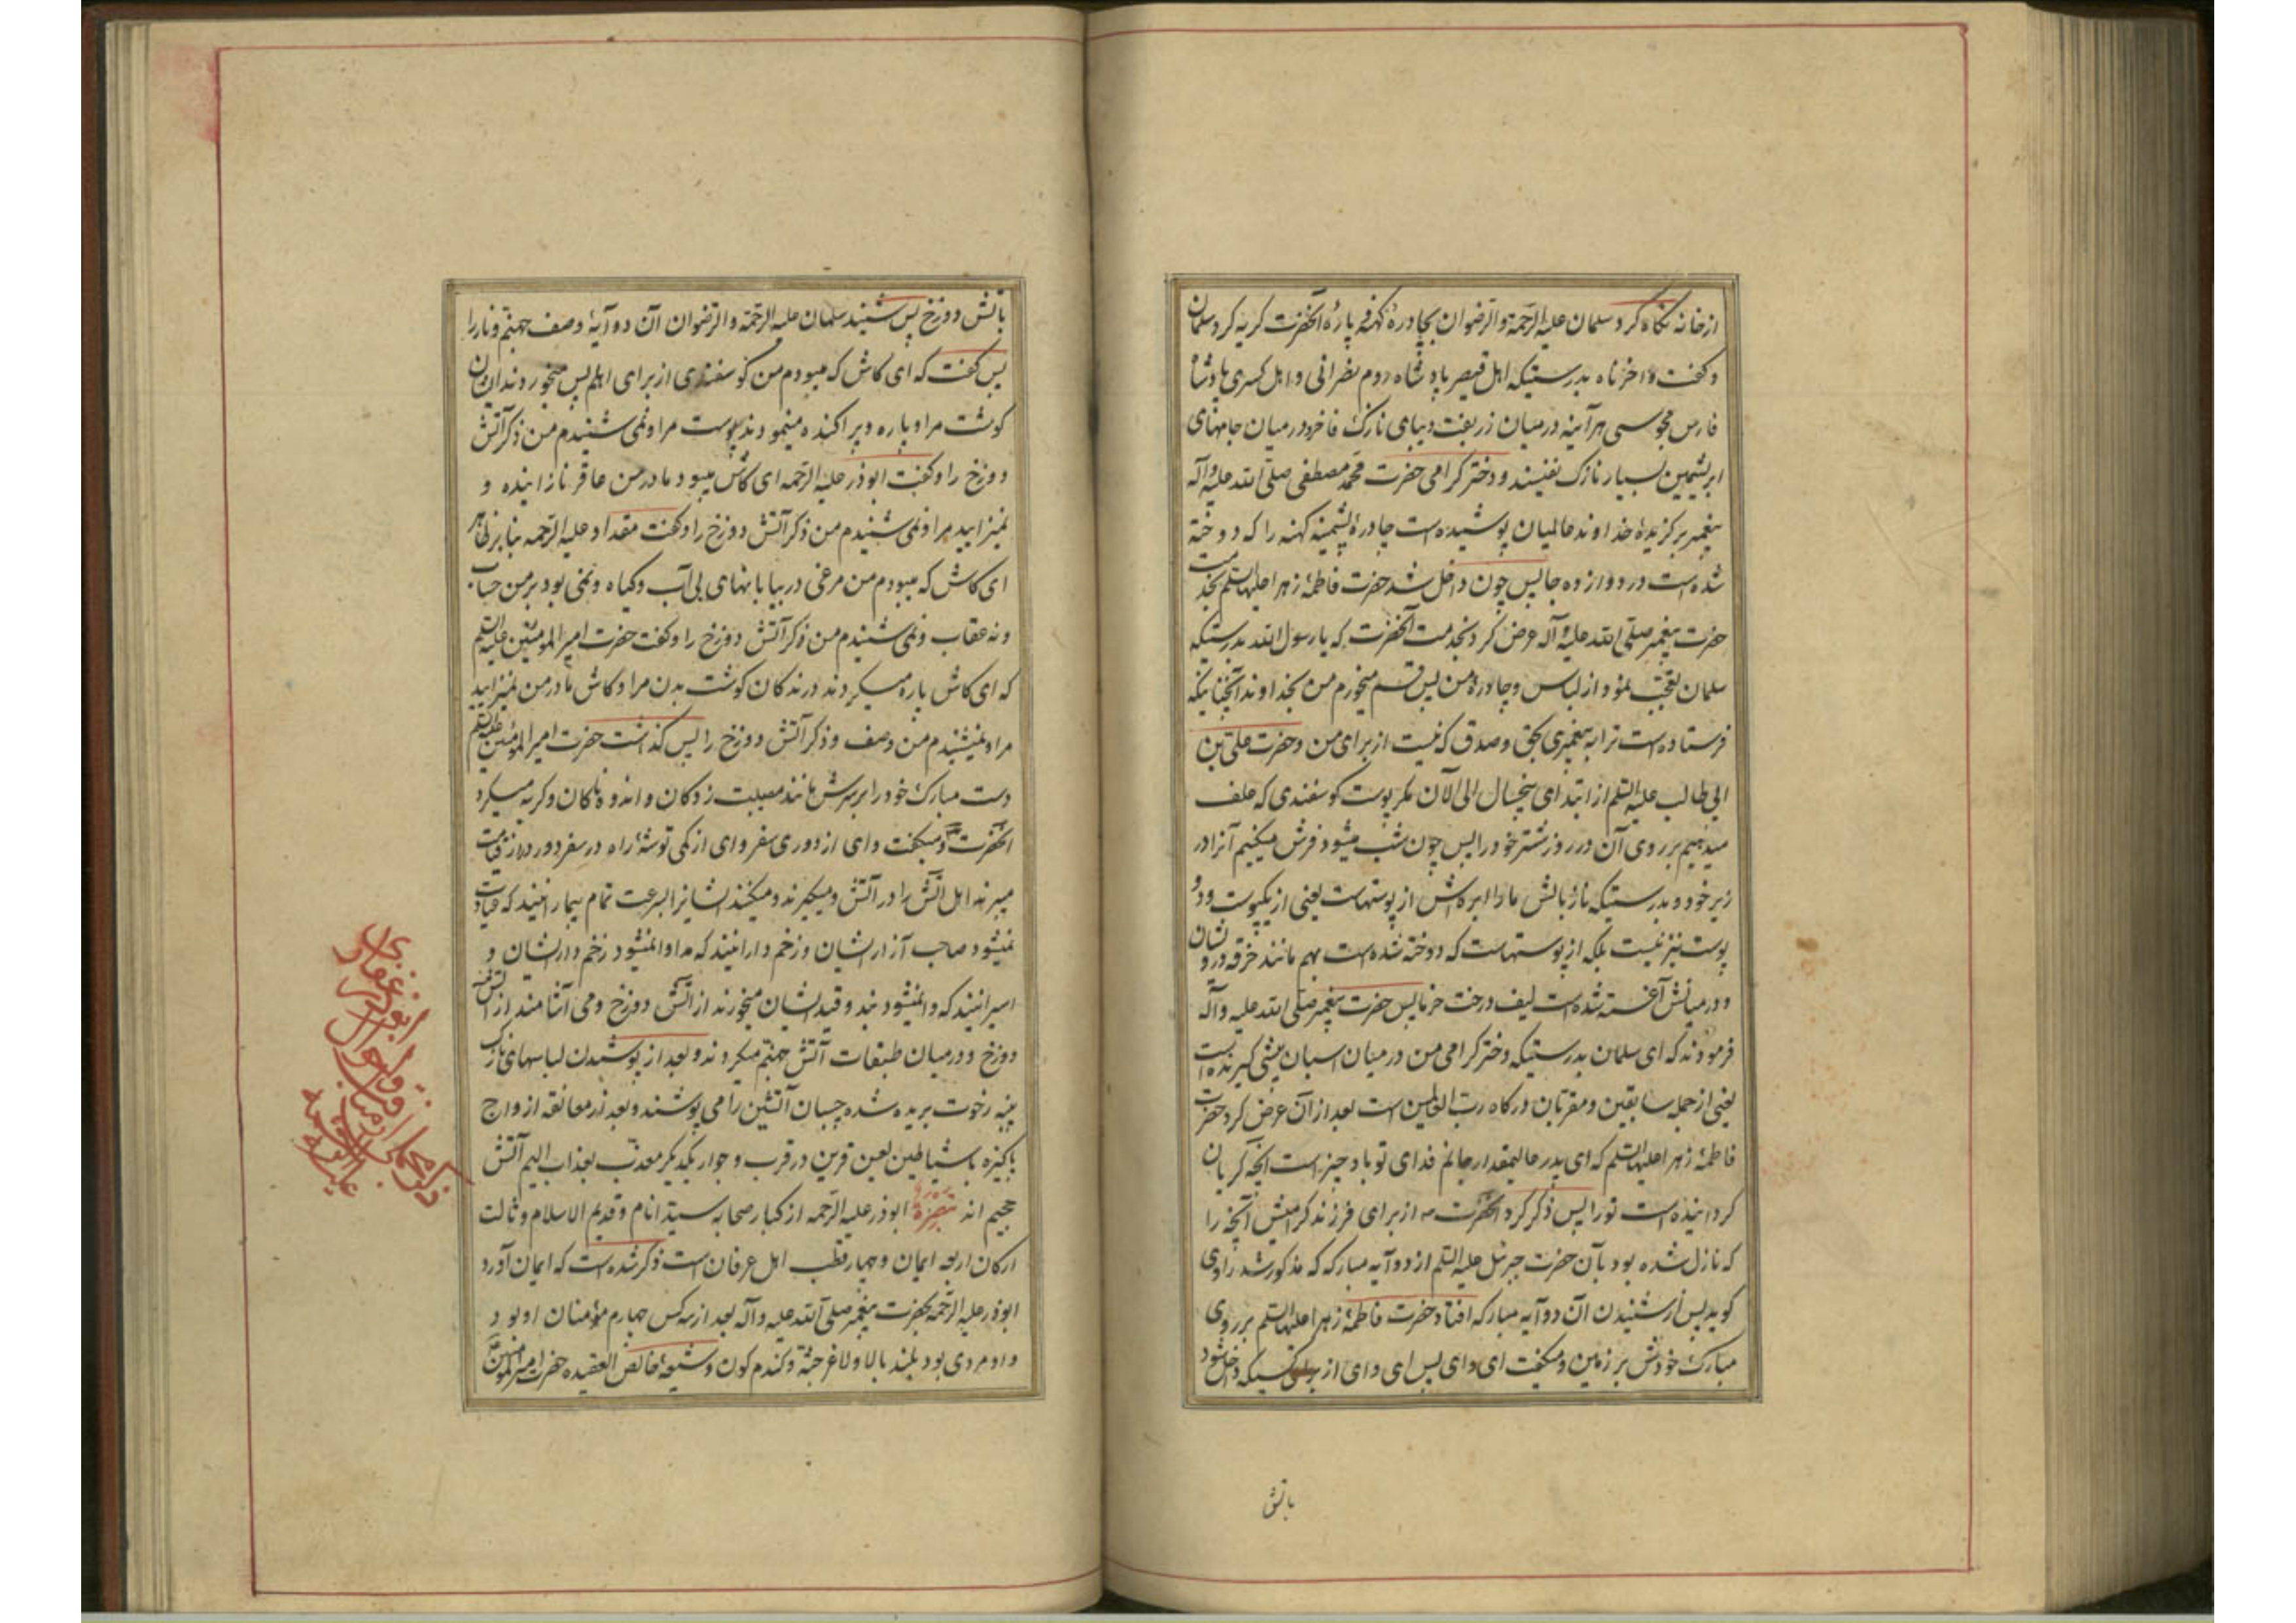 از خانه نگاه کرد سلمان علیه الرحمة والرضوان بچادرهٔ کهنهٔ پاره آنحضرت کریه کرد سلمان
و کفت واحزناه بدرستیکه اهل قیصر پادشاه روم نصرانی و اهل کسری پادشاه
فارس مجوسی هرآینه درمیان زربفت دیبای نازک فاخر و درمیان جامهای
ابریشمین بسیار نازک نفیسند و دختر کرامی حضرت محمد مصطفی صلی الله علیه و آله
پیغمبر برکزیدهٔ خداوند عالمیان پوشیده است چادرهٔ پشمینه کهنه را که دوخته
شده است در دوازده جا پس چون داخل شد حضرت فاطمهٔ زهرا علیها السلم بخدمت
حضرت پیغمبر صلی الله علیه و آله عرض کرد بخدمت آنحضرت که یا رسول الله بدرستیکه
سلمان تعجب نمود از لباس و چادرهٔ من پس قسم میخورم من بخداوند آنچنانیکه
فرستاده است ترا به پیغمبری بحق و صدق که نیست از برای من و حضرت علی بن
ابی طالب علیه السلم از ابتدای پنجسال الی الآن مکر پوست کوسفندی که علف
میدهیم بر روی آن در روز شتر خود را پس چون شب میشود فرش میکنیم آنرا در
زیر خود و بدرستیکه ناز بالش ما را ابره اش از پوستهاست یعنی از یکپوست و دو
پوست نیز نیست بلکه از پوستهاست که دوخته شده است بهم مانند خرقه درویشان
و درمیانش آغسته شده است لیف درخت خرما پس حضرت پیغمبر صلی الله علیه و آله
فرمودند که ای سلمان بدرستیکه دختر کرامی من درمیان اسبان پیشی کیرنده است
یعنی از جمله سابقین و مقربان درکاه رب العالمین است بعد از آن عرض کرد حضرت
فاطمهٔ زهرا علیها السلم که ای پدر عالیمقدار جانم فدای تو باد چیز است آنچه کریان
کردانیده است تو را پس ذکر کرد آنحضرت ص از برای فرزند کرامیش آنچه را
که نازل شده بود بآن حضرت جبرئیل علیه السلم از دو آیه مبارکه که مذکور شد راوی
کوید پس از شنیدن آن دو آیه مبارکه افتاد حضرت فاطمهٔ زهرا علیها السلم بر روی
مبارک خودش بر زمین و میکفت ای وای پس ای وای از برای کسیکه داخل شود
باتش
باتش دوزخ پس شنید سلمان علیه الرحمة والرضوان آن دو آیهٔ وصف جهنم و نار را
پس کفت که ای کاش که میبودم من کوسفندی از برای اهلم پس میخوردند ایشان
کوشت مرا و پاره و پراکنده مینمودند پوست مرا و نمی شنیدم من ذکر آتش
دوزخ را و کفت ابوذر علیه الرحمه ای کاش میبود مادر من عاقر نازاینده و
نمیزایید مرا و نمی شنیدم من ذکر آتش دوزخ را و کفت مقداد علیه الرحمه
ای کاش که میبودم من مرغی در بیابانهای بی آب و کیاه و نمی بود بر من حساب
و نه عقاب و نمی شنیدم من ذکر آتش دوزخ را و کفت حضرت امیر المومنین علیه السلم
که ای کاش پاره میکردند درندکان کوشت بدن مرا و کاش مادر من نمیزایید
مرا و نمیشنیدم من وصف و ذکر آتش دوزخ را پس کذاشت حضرت امیر المومنین علیه السلم
دست مبارک خود را بر سرش مانند مصیبت زدکان و اندوهناکان و کریه میکرد
آنحضرت و میکفت وای از دوری سفر وای از کمی توشهٔ راه در سفر دور دراز قیامت
میبرند اهل آتش را در آتش و میکیرند و میکنند ایشانرا بسرعت تمام بیمارانیند که عیادت
نمیشود صاحب آزار ایشان و زخم دارانیند که مداوا نمیشود زخم دار ایشان و
اسیرانیند که وا نمیشود بند و قید ایشان میخورند از آتش دوزخ و می آشامند از آتش
دوزخ و درمیان طبقات آتش جهنم میکردند و بعد از پوشیدن لباسهای نازک
پنبه رخوت بریده شده چسبان آتشین را می پوشند و بعد از معانقه ازواج
پاکیزه با شیاطین لعین قرین در قرب و جوار یکدیکر معذب بعذاب الیم آتش
جحیم اند تبصره ابوذر علیه الرحمه از کبار صحابه سید انام و قدیم الاسلام و ثالث
ارکان اربعه ایمان و چهار قطب اهل عرفان است ذکر شده است که ایمان آورد
ابوذر علیه الرحمه بحضرت پیغمبر صلی الله علیه و آله بعد از سه کس چهارم مؤمنان او بود
و او مردی بود بلند بالا و لاغر جثه و کندم کون و شیعهٔ خالص العقیده حضرت امیر المومنین